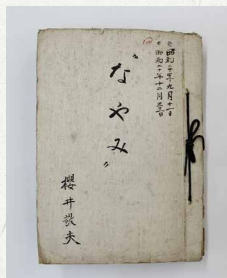 昭和二十年九月十一日
昭和二十年十二月三十一日
〝なやみ〟
櫻井敬夫